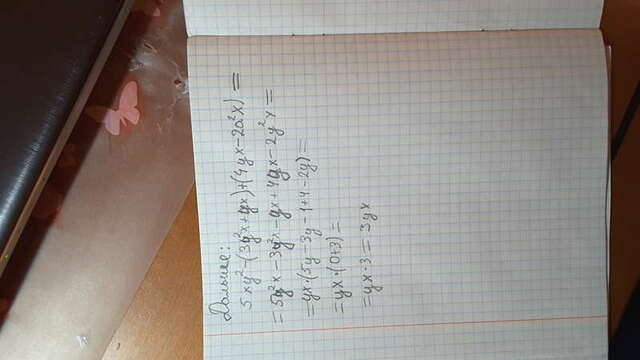 Дальше:
5xy²-(3y²x+yx)+(4yx-2a²x) =
= 5y²x-3y²x-yx+4yx-2y²x=
=yx·(5y-3y-1+4-2y)=
=yx·(0+3)=
=yx·3=3yx